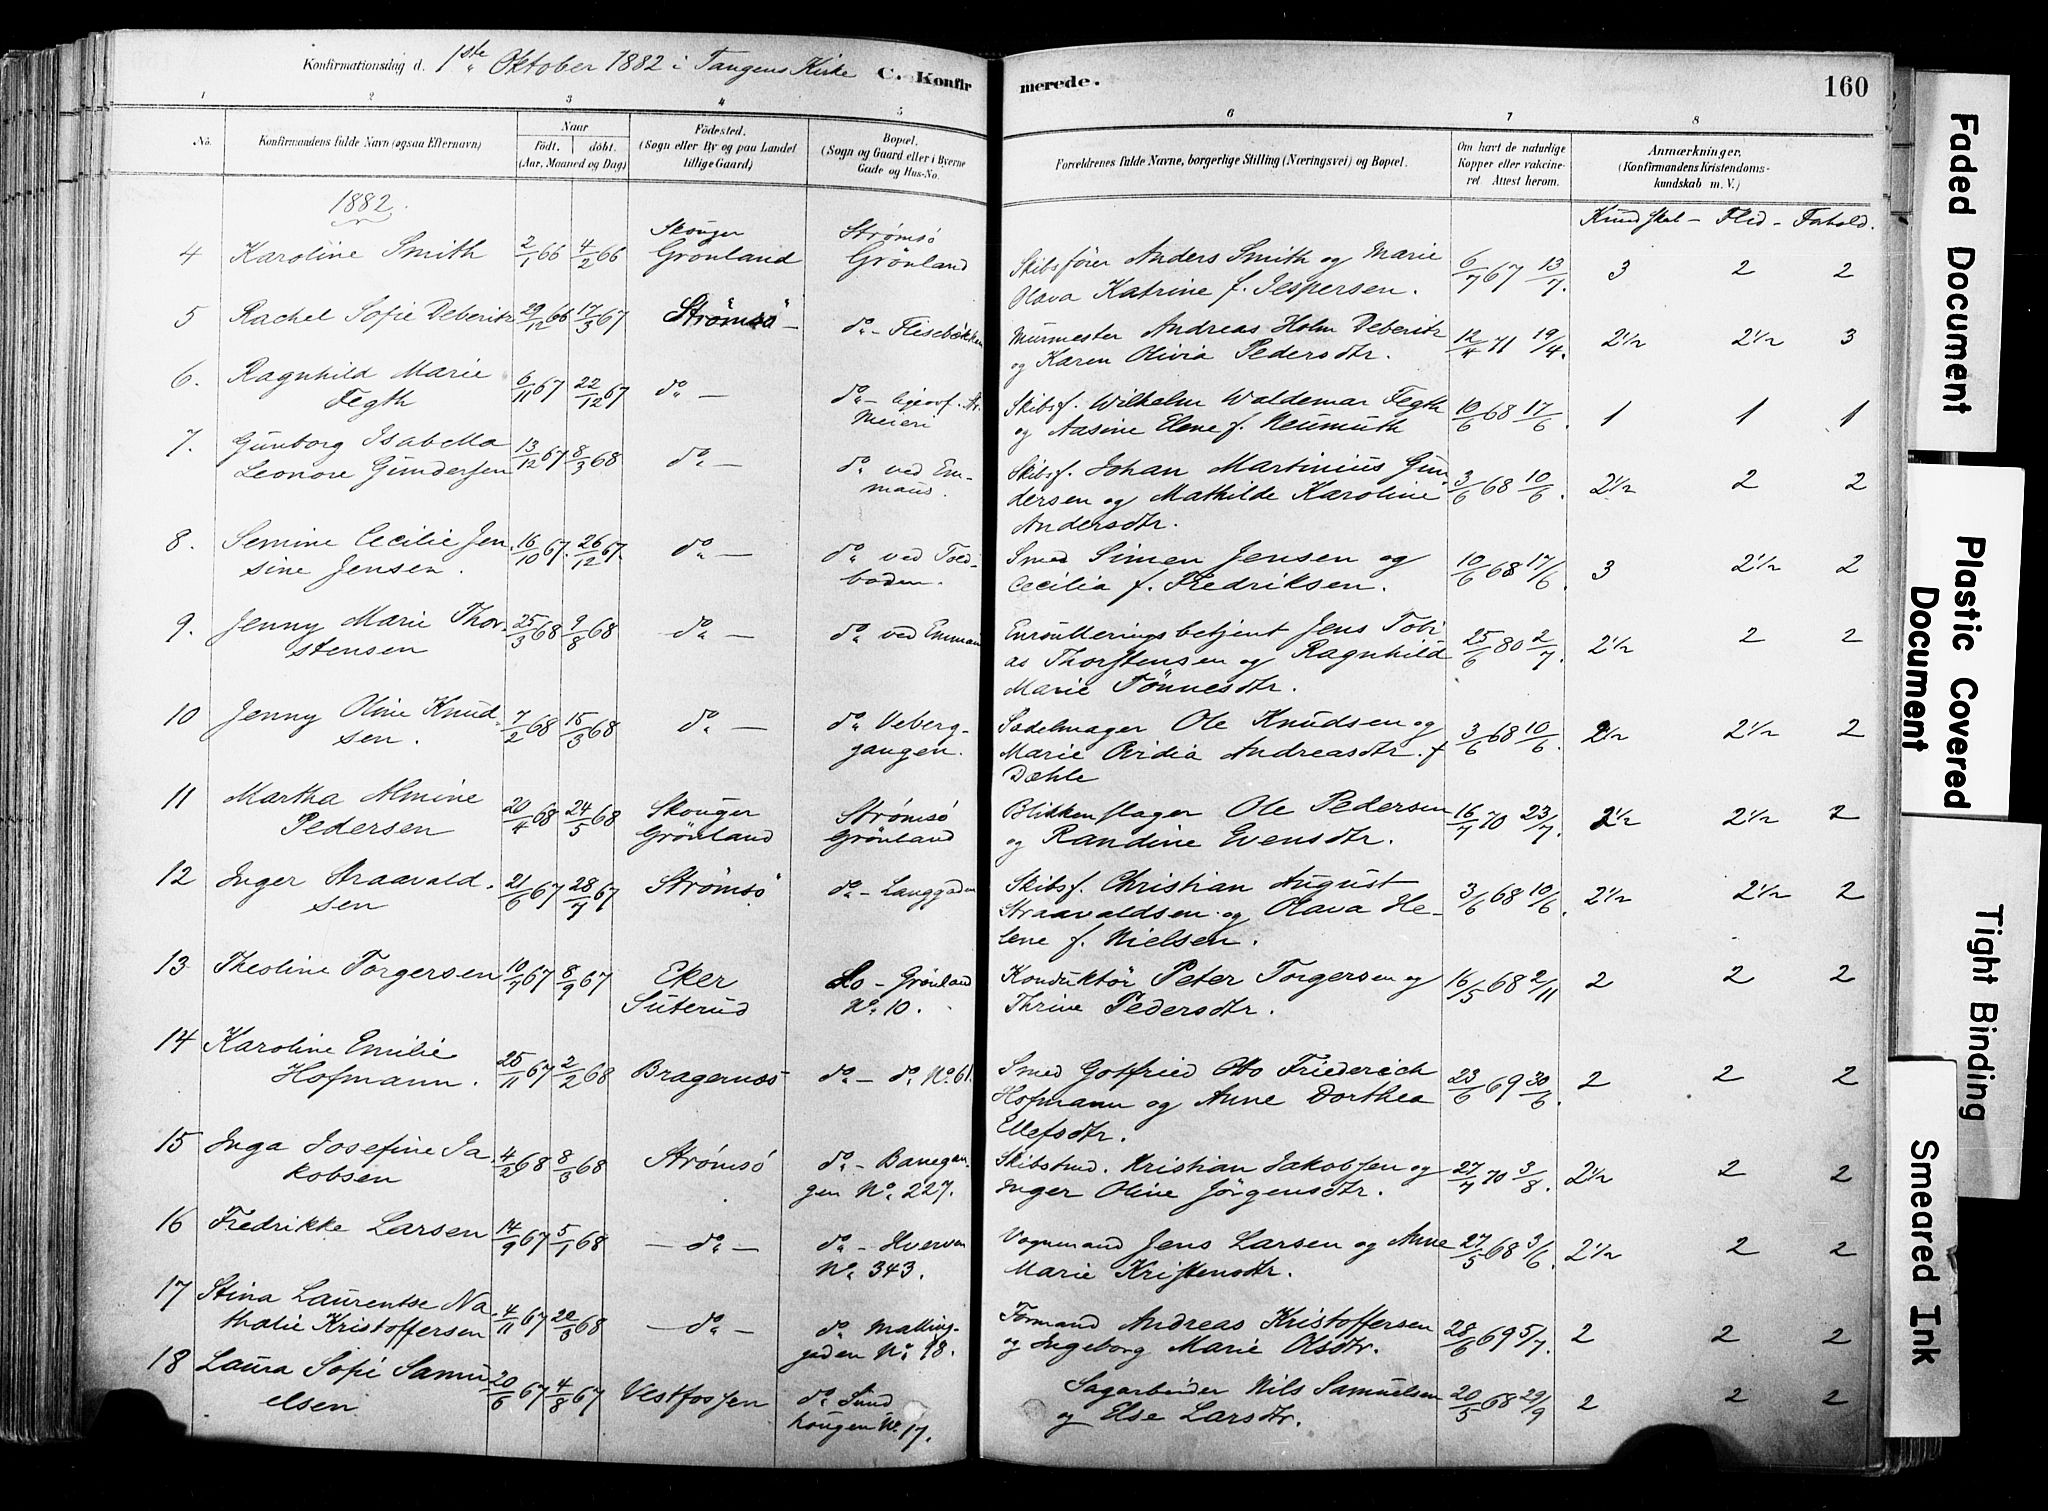 Konfirmationsdag d. 1ste Oktober 1882 i Tangens Kirke C. Konfir merede. 160
1 2 3 4 5 6 7 8
No. Konfirmandens fulde Navn (ogsaa Efternavn) Naar født. døbt. (Aar, Maaned og Dag) Födested. (Sogn eller By og paa Landet tillige Gaard) Bopæl. (Sogn og Gaard eller i Byerne Gade og Hus-No. Forældrenes fulde Navne, borgerlige Stilling (Næringsvei) og Bopæl. Om havt de naturlige Kopper eller vakcineret. Attest herom. Anmærkninger, (Konfirmandens Kristendomskundskab m. V.)
1882. Kundskab - Flid - Forhold.
4 Karoline Smith 2/1 66 4/2 66 Skouger Grönland Strømsö Grönland Skibsfører Anders Smith og Marie
Olava Katrine f. Jespersen. 6/7 67 13/7. 3 2 2
5 Rachel Sofie Deberitz 29/12 66 17/3 67 Strømsö - do - Flisebækken Murmester Andreas Holm Deberitz
og Karen Olivia Pedersdtr. 12/4 71 19/4. 2 1/2 2 1/2 3
6. Ragnhild Marie
Fegth 6/11 67 22/12 67 do - do - ligeovf. Str.
Meieri Skibsf. Wilhelm Waldemar Fegth
og Aasine Elene f. Neumuth 10/6 68 17/6. 1 1 1
7. Gunborg Isabella
Leonore Gundersen 13/12 67 8/3 68 do - do ved Em-
maus. Skibsf. Johan Martinius Gun
dersen og Mathilde Karoline
Andersdtr. 3/6 68 10/6. 2 1/2 2 2
8. Semine Cecilie Jen
sine Jensen. 16/10 67. 26/12 67. do - do ved Told-
boden. Smed Simen Jensen og
Cecilia f. Fredriksen. 10/6 68 17/6. 3 2 1/2 2
9. Jenny Marie Thor-
stensen 25/3 68 9/8 68 do - do ved Emmaus Enrouleringsbetjent Jens Tobi
as Thorstensen og Ragnhild
Marie Tönnesdtr. 25/6 80 2/7. 2 1/2 2 2
10 Jenny Oline Knud-
sen. 7/2 68 15/3 68 do - do Veberg-
gangen. Sadelmager Ole Knudsen og
Marie Ovidia Andreasdtr. f
Dæhle 3/6 68 10/6. 2 1/2 2 1/2 2
11 Martha Almine
Pedersen 20/4 68 24/5 68 Skouger
Grönland Strømsö
Grönland Blikkenslager Ole Pedersen
og Randine Evensdtr. 16/7 70 23/7. 2 1/2 2 1/2 2
12 Inger Straavald-
sen 21/6 67 28/7 67 Strömsö do - Langgaden Skibsf. Christian August
Straavaldsen og Olava He-
lene f. Nielsen. 3/6 68 10/6. 2 1/2 2 1/2 2
13 Thestine Torgersen 10/7 67 8/9 67 Eker
Suterud do - Grönland
No. 10. Konduktör Peter Torgersen og
Thrine Pedersdtr. 16/5 68 2/11 2 2 2
14 Karoline Emilie
Hofmann. 25/11 67 2/2 68 Bragernæs do - do No. 61. Smed Gotfried Otto Friederich
Hofmann og Anne Dorthea
Ellefsdtr. 23/6 69 30/6. 2 2 2
15 Inga Josefine Ja
kobsen 4/2 68 8/3 68 Strömsö do - Banegan
gen No. 227. Skibstmd. Kristian Jakobsen og
Inger Oline Jörgensdtr. 27/7 70 3/8. 2 1/2 2 2
16 Fredrikke Larsen 14/9 67 5/1 68 - do - do - Hverven
No. 343. Vognmand Jens Larsen og Anne
Marie Kristensdtr. 27/5 68 3/6. 2 1/2 2 2
17 Stina Laurentse Na
thalie Kristoffersen 4/11 67 20/3 68 - do - do Mallings-
gaden No. 98. Formand Andreas Kristoffersen
og Ingeborg Marie Olsdtr. 28/6 69 5/7. 2 2 2
18 Laura Sofie Samu
elsen 20/6 67 4/8 67 Vestfossen do Sund
hougen No. 17. Sagarbeider Nils Samuelsen
og Else Larsdtr. 20/5 68 29/9 2 2 2
Faded Document
Plastic Covered
Document
Tight Binding
Smeared Ink